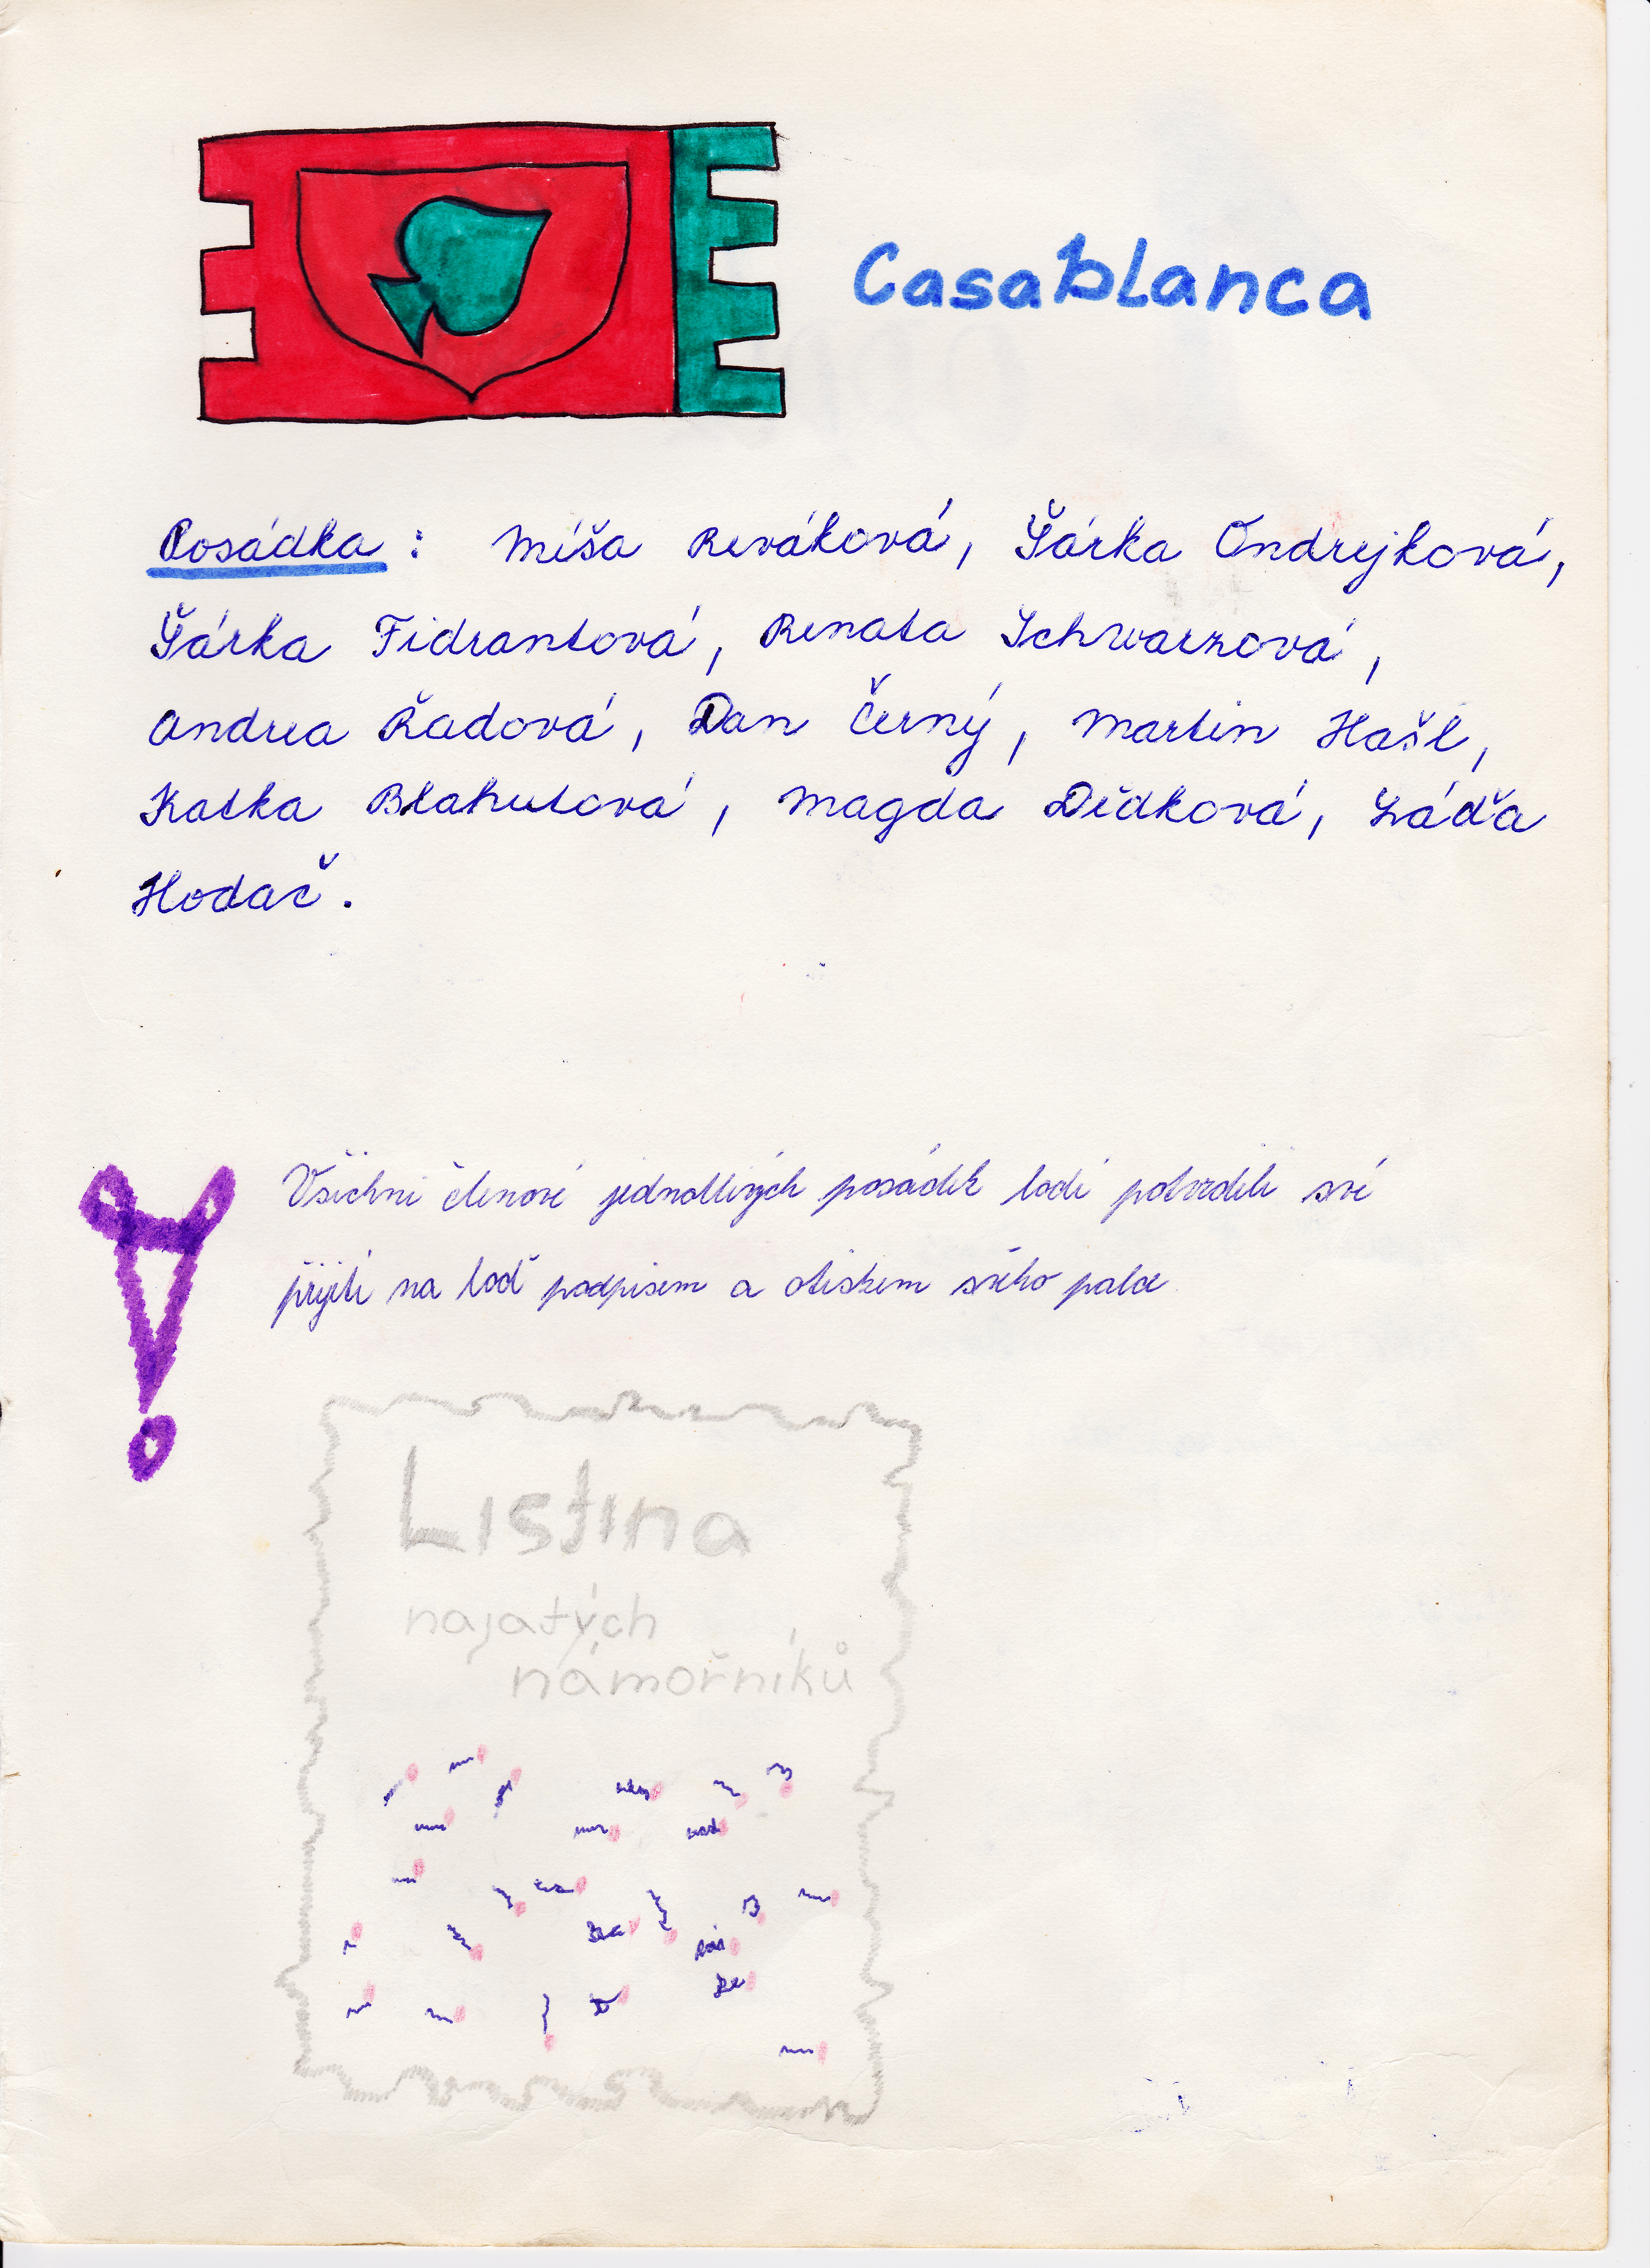 Casablanca
Posádka: Míša Reváková, Šárka Ondrejková,
Šárka Fidrantová, Renata Schwarzová,
Andrea Řadová, Dan Černý, Martin Hašl,
Katka Blahutová, Magda Dědková, Láďa
Hodač.
Všichni členové jednotlivých posádek lodí potvrdili své
přijetí na loď podpisem a otiskem svého palce
Listina
najatých
námořníků